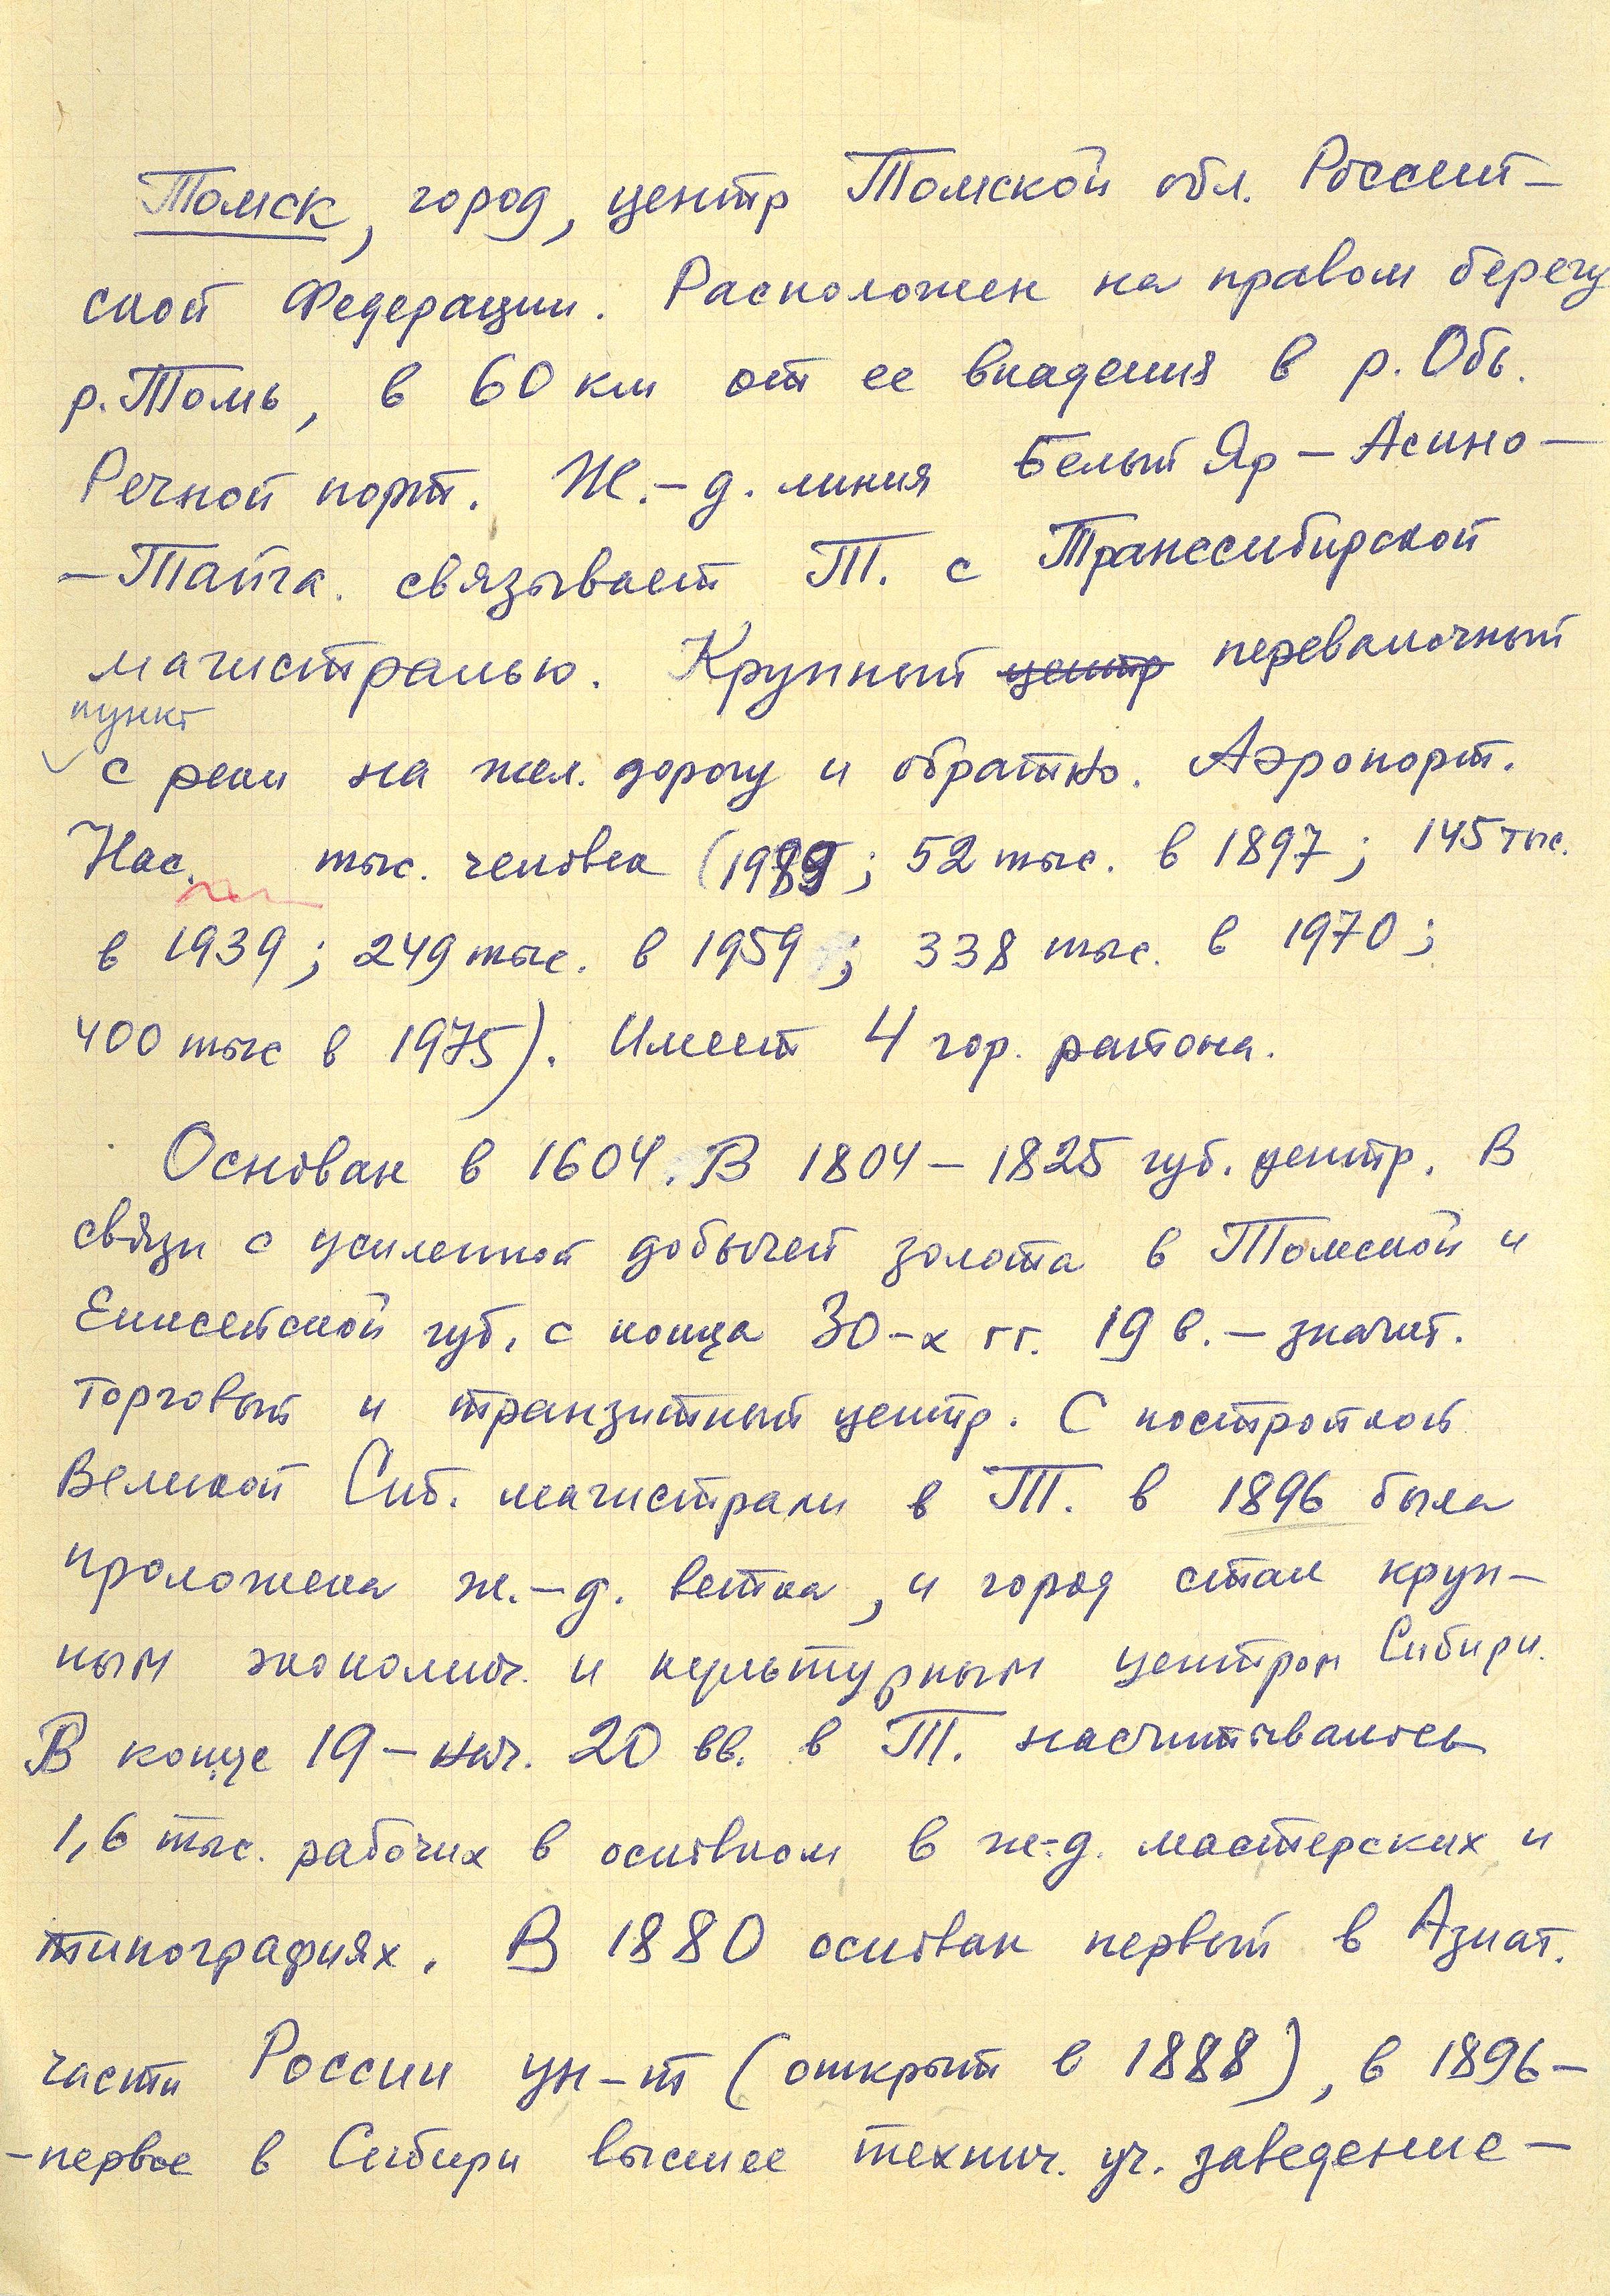 Томск, город, центр Томской обл. Россий-
ской Федерации. Расположен на правом берегу
р. Томь, в 60 км от ее впадения в р. Обь.
Речной порт. Ж.-д. линия Белый Яр – Асино –
– Тайга. связывает Т. с Транссибирской
магистралью. Крупный центр перевалочный
пункт
с реки на жел. дорогу и обратно. Аэропорт.
Нас. тыс. человек (1989; 52 тыс. в 1897; 145 тыс.
в 1939; 249 тыс. в 1959; 338 тыс. в 1970;
400 тыс в 1975). Имеет 4 гор. района.
Основан в 1604. В 1804 – 1825 губ. центр. В
связи с усиленной добычей золота в Томской и
Енисейской губ. с конца 30-х гг. 19 в. – значит.
торговый и транзитный центр. С постройкой
Великой Сиб. магистрали в Т. в 1896 была
проложена ж.-д. ветка, и город стал круп-
ным экономич. и культурным центром Сибири.
В конце 19 – нач. 20 вв. в Т. насчитывалось
1,6 тыс. рабочих в основном в ж.-д. мастерских и
типографиях. В 1880 основан первый в Азиат.
части России ун-т (открыт в 1888), в 1896 –
– первое в Сибири высшее технич. уч. заведение –